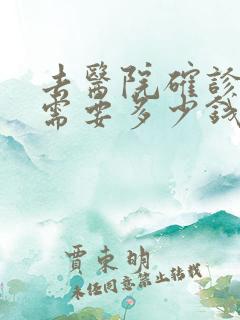 去醫院確診
需要多少錢
賈東明
未經同意禁止轉載